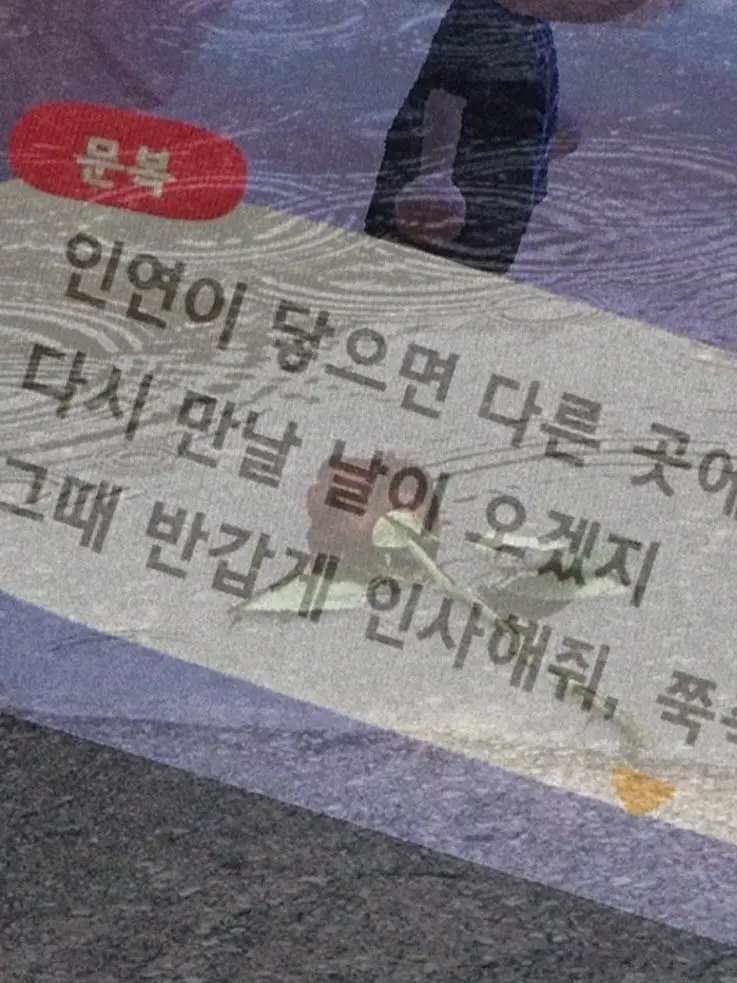 문복
인연이 닿으면 다른 곳에
다시 만날 날이 오겠지
그때 반갑게 인사해줘, 쭉